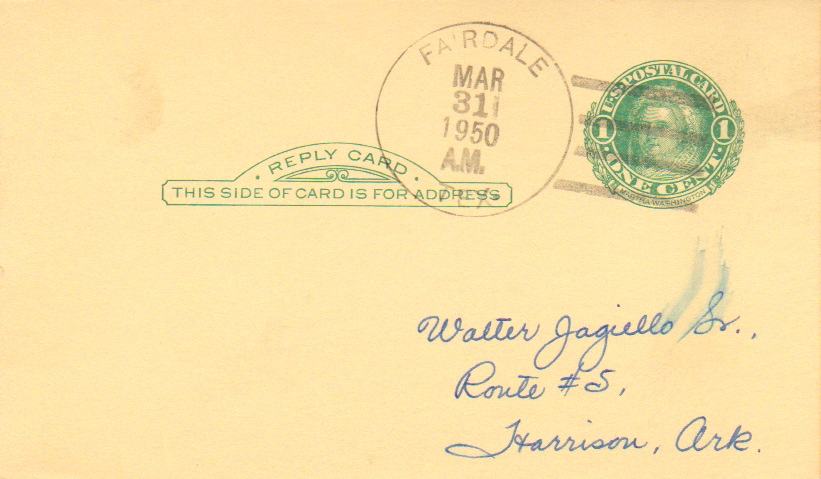 FAIRDALE
MAR
31
1950
A.M.
TEX.
U.S. POSTAL CARD
1 1
· ONE CENT ·
MARTHA WASHINGTON
· REPLY CARD ·
THIS SIDE OF CARD IS FOR ADDRESS
Walter Jagiello Sr.,
Route #5,
Harrison, Ark.